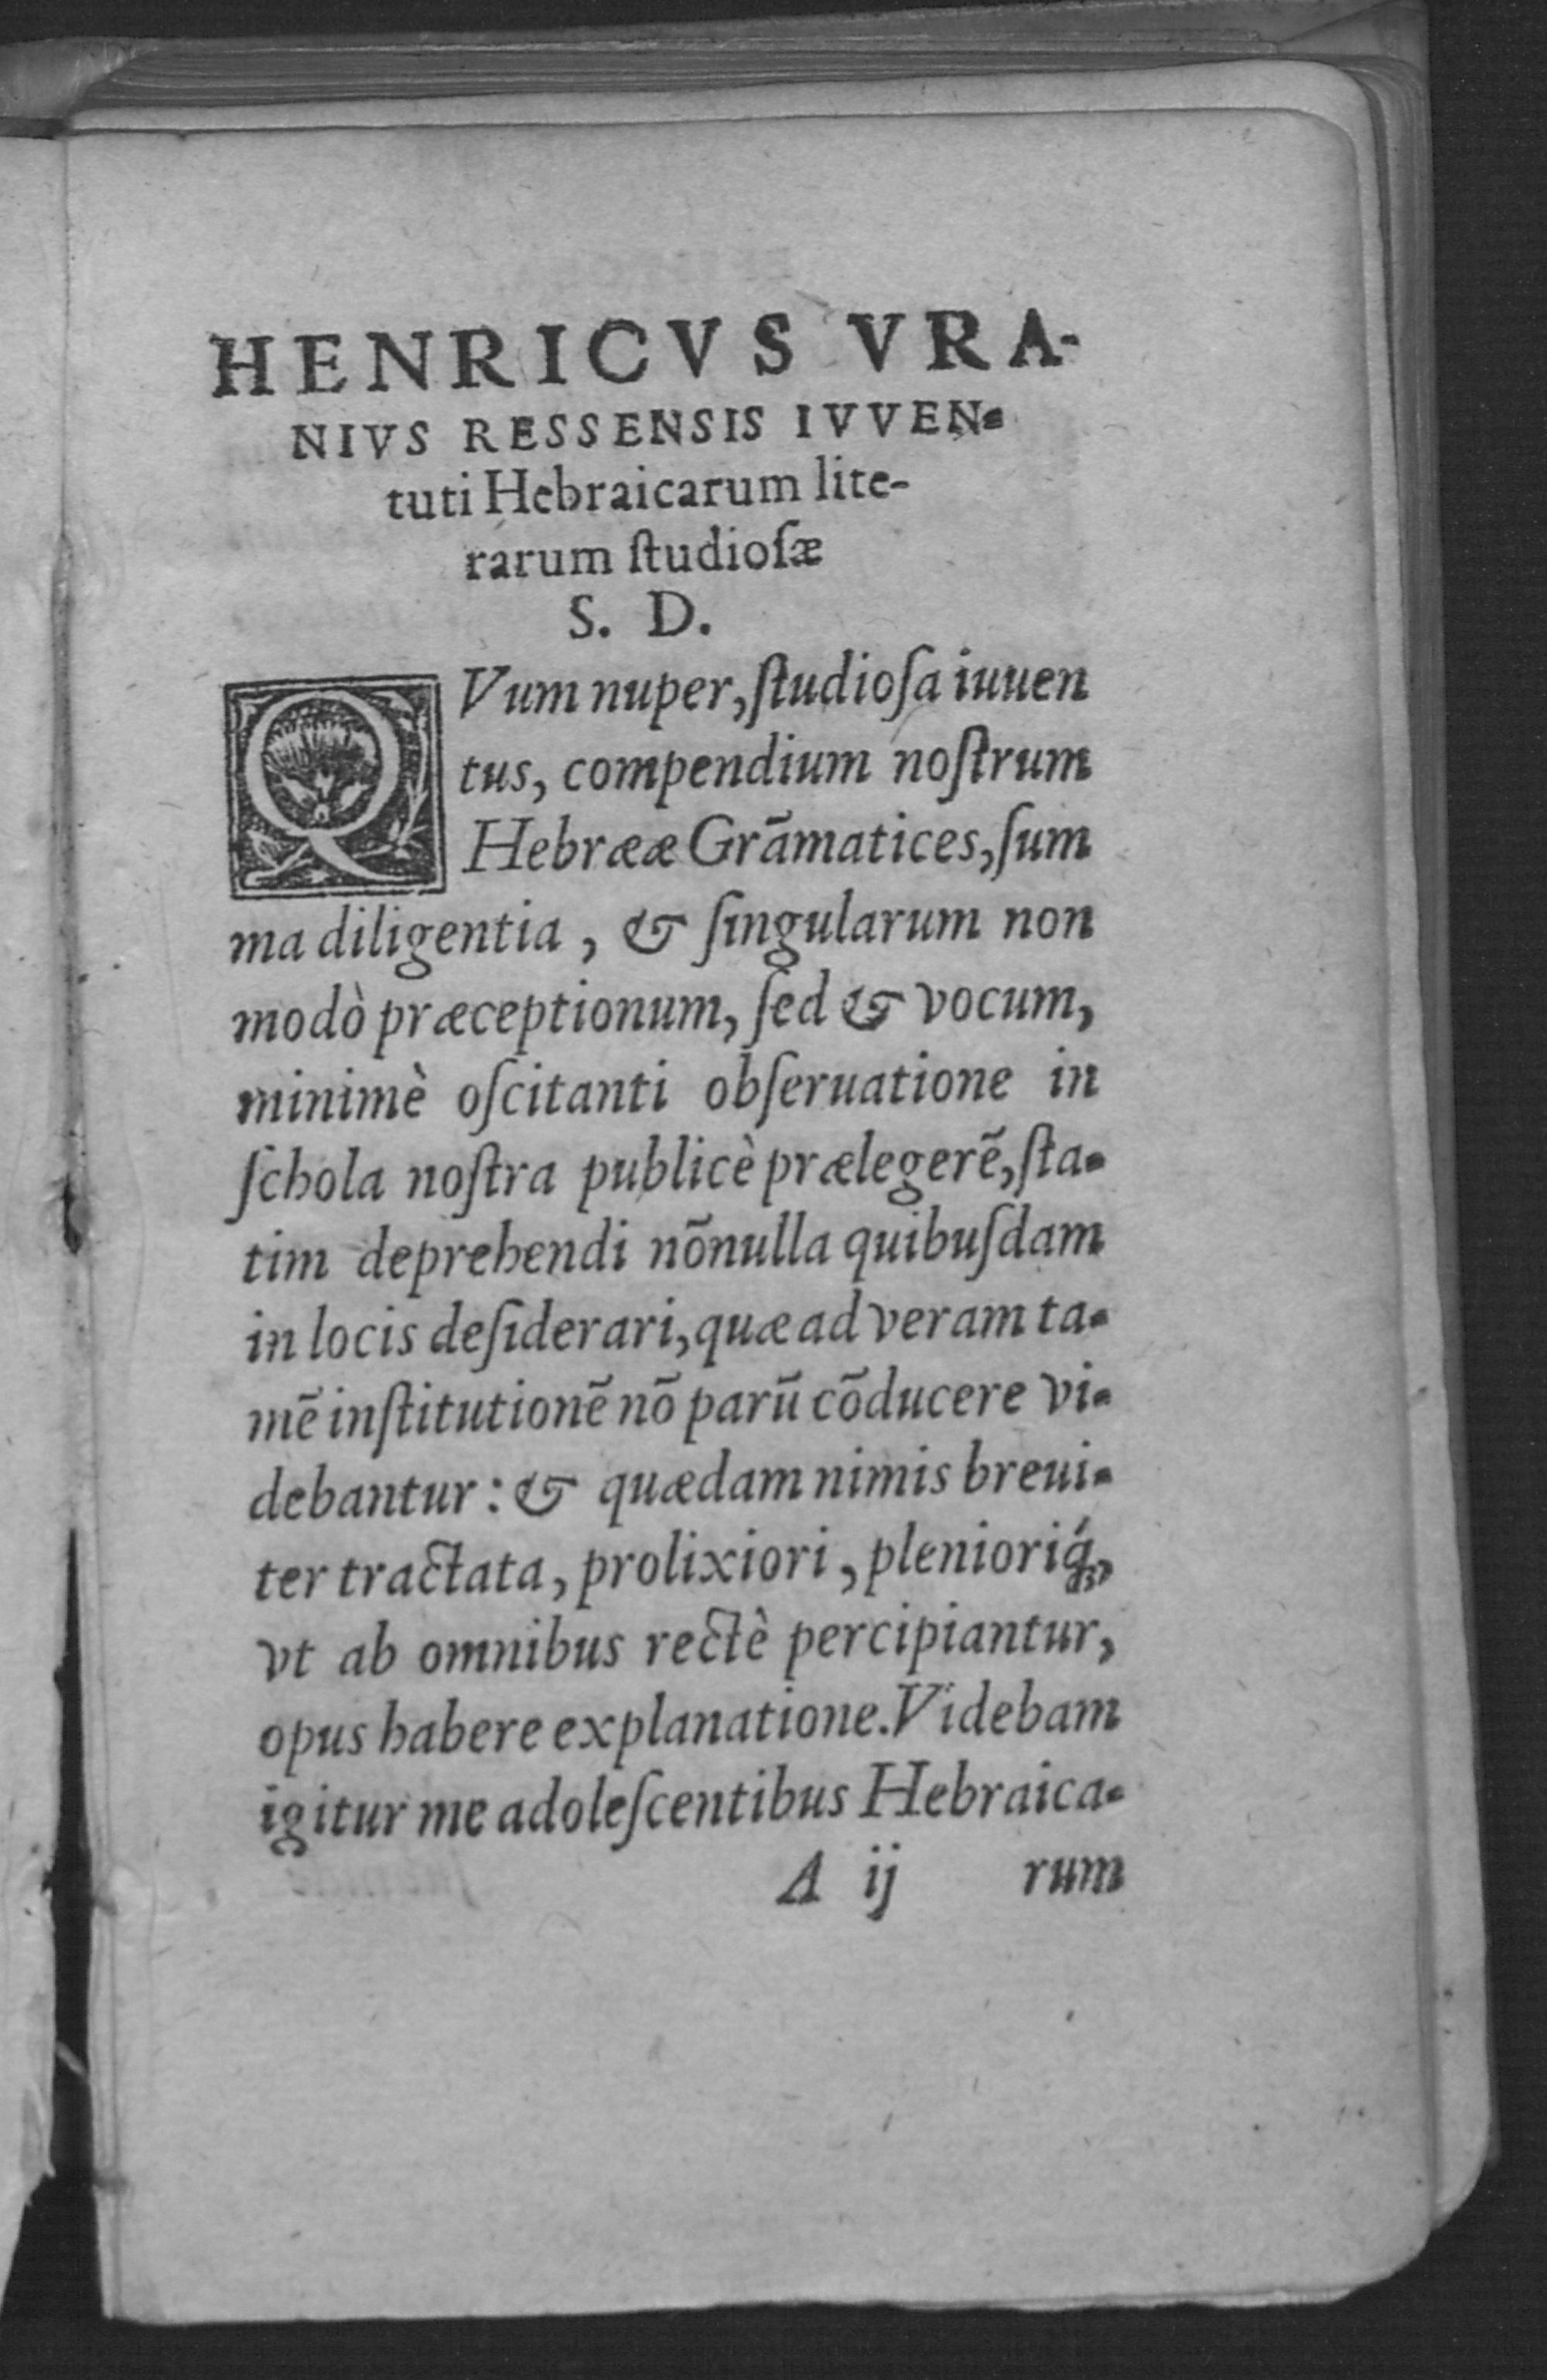 HENRICVS VRA-
NIVS RESSENSIS IVVEN-
tuti Hebraicarum lite-
rarum ſtudioſæ
S. D.
QVum nuper, ſtudioſa iuuen
tus, compendium noſtrum
Hebrææ Grãmatices, ſum
ma diligentia, & ſingularum non
modò præceptionum, ſed & vocum,
minimè oſcitanti obſeruatione in
ſchola noſtra publicè prælegerẽ, ſta-
tim deprehendi nõnulla quibuſdam
in locis deſiderari, quæ ad veram ta-
mẽ inſtitutionẽ nõ parũ cõducere vi-
debantur: & quædam nimis breui-
ter tractata, prolixiori, plenioriq́;,
vt ab omnibus rectè percipiantur,
opus habere explanatione. Videbam
igitur me adoleſcentibus Hebraica-
A ij rum